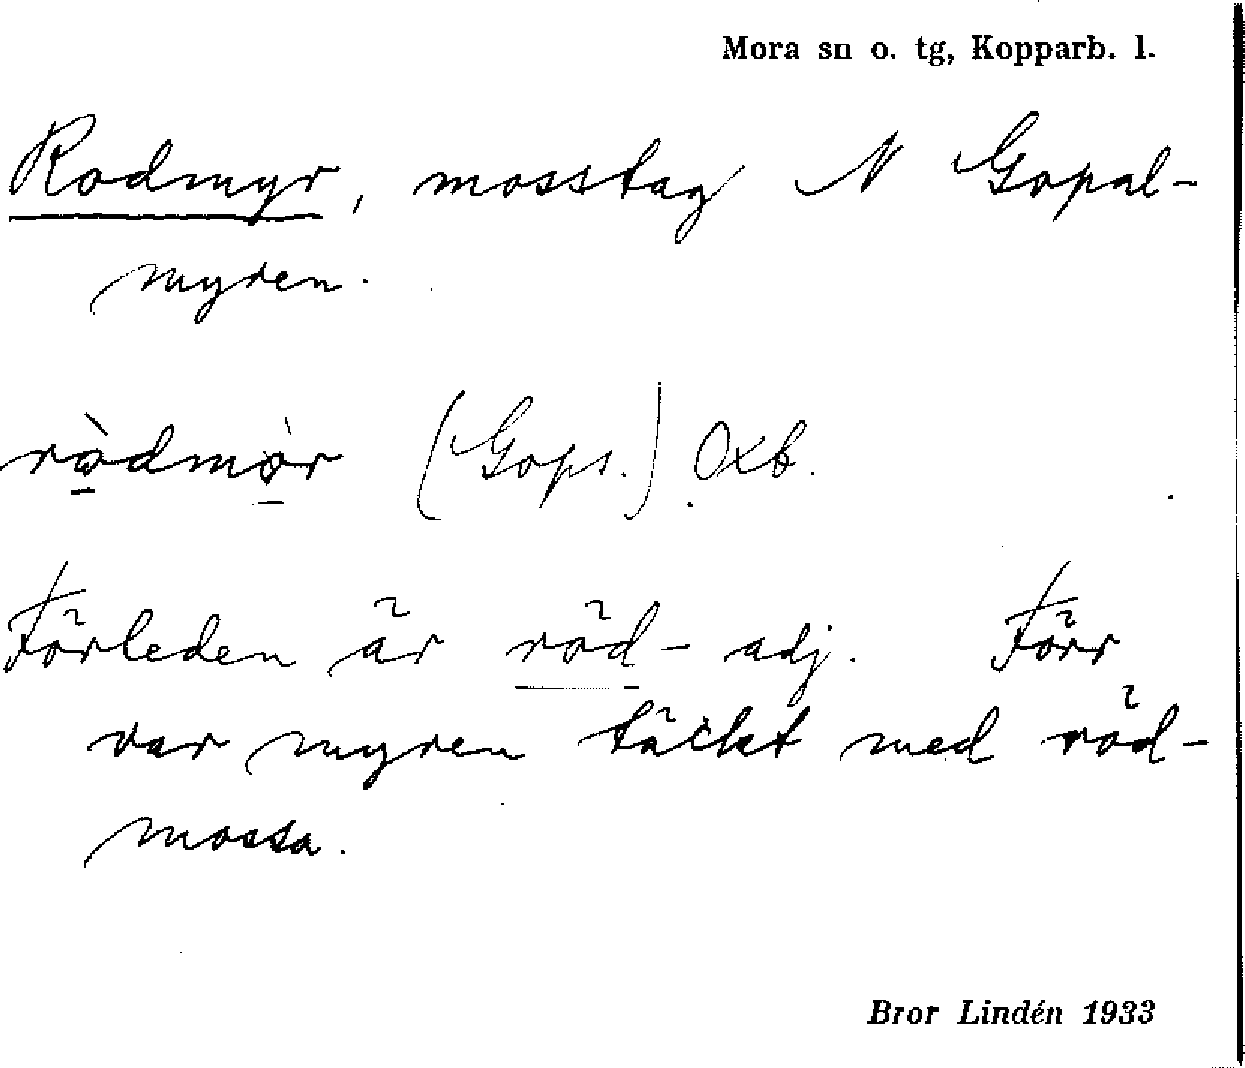 Mora sn o. tg, Kopparb. l.
Rodmyr, mosstag N Gopal-
myren.
ròdmòr (Gops.) Oxb.
Förleden är röd- adj. Förr
var myren täckt med röd-
mossa.
Bror Lindén 1933